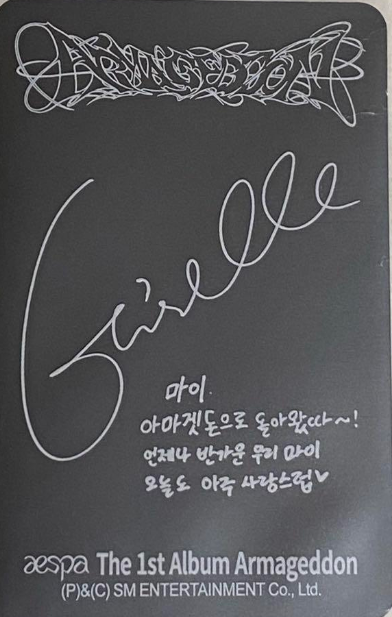 ARMAGEDDON
Giselle
마이.
아마겟돈으로 돌아왔따~!
언제나 반가운 우리 마이
오늘도 아주 사랑스럽♡
aespa The 1st Album Armageddon
(P)&(C) SM ENTERTAINMENT Co., Ltd.